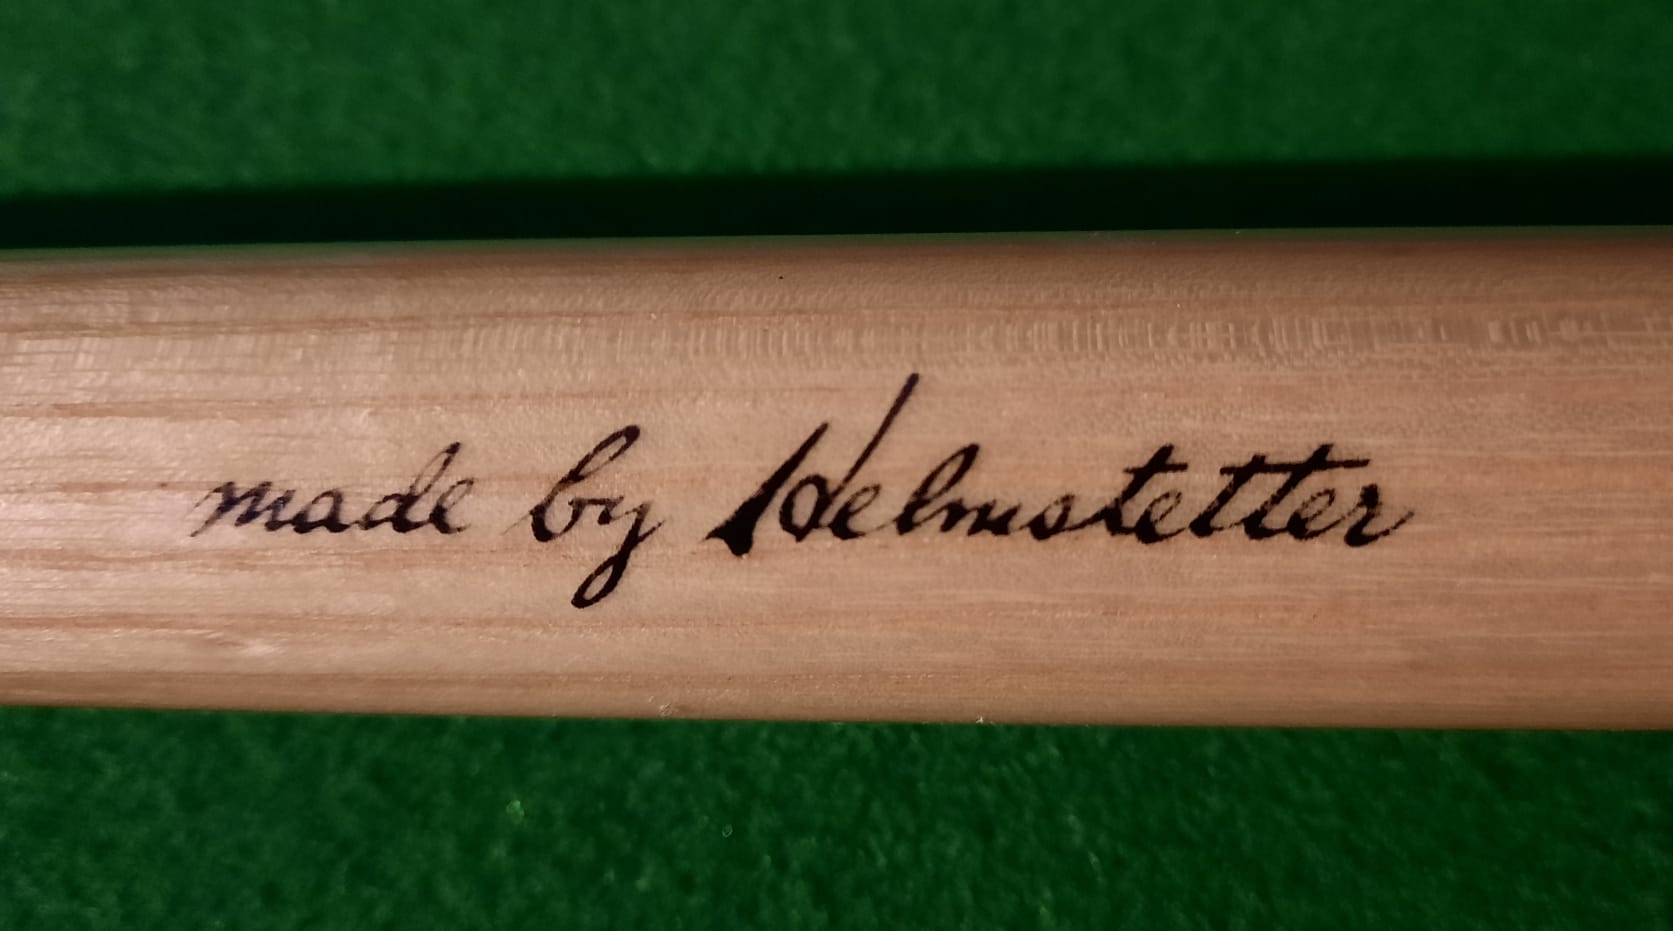 made by Helmstetter